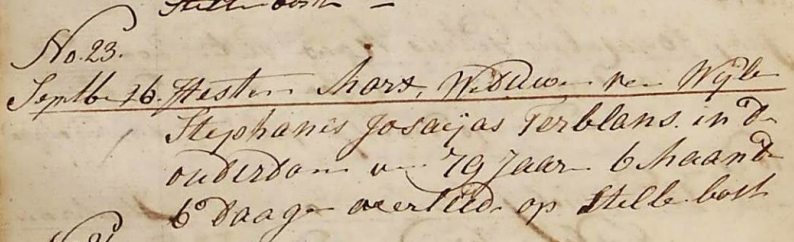 Stellenbosh
No. 23.
Septbr 16. Hester Marx, Weduwe van Wijle
Stephanis Josaijas Terblans. in de
ouderdom van 79 Jaar 6 Maande
6 Daage overlede op Stellebosh
No